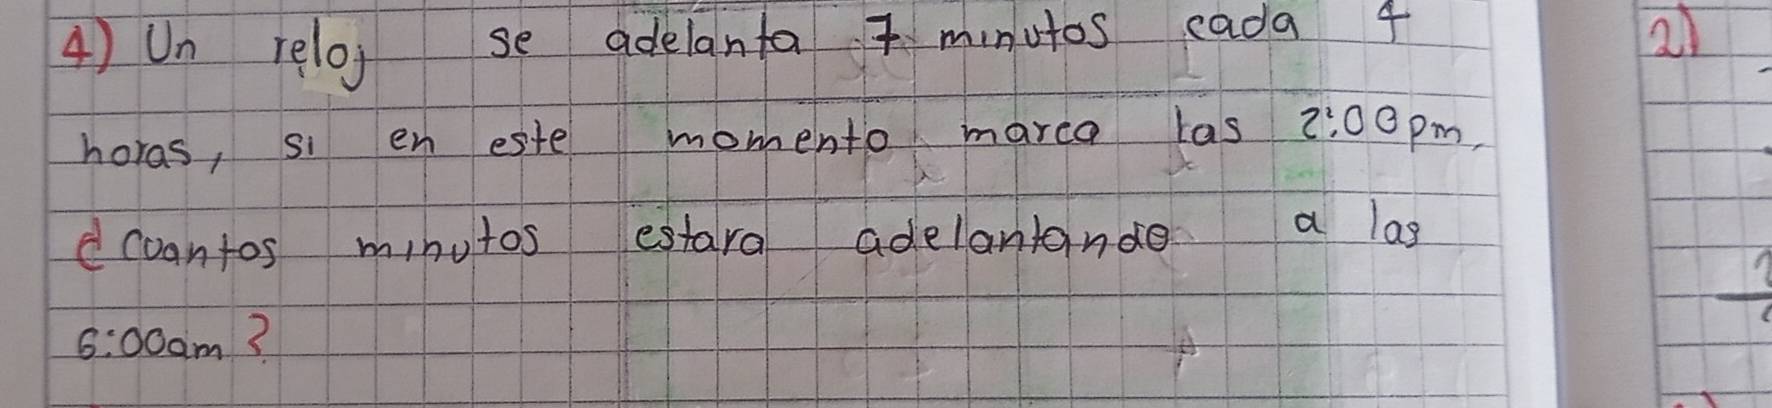 4) Un reloj se adelanta 7 minutos cada 4
horas, si en este momento marca las 2:00pm,
¿cuantos minutos estara adelantando a las
6:00am?
2)